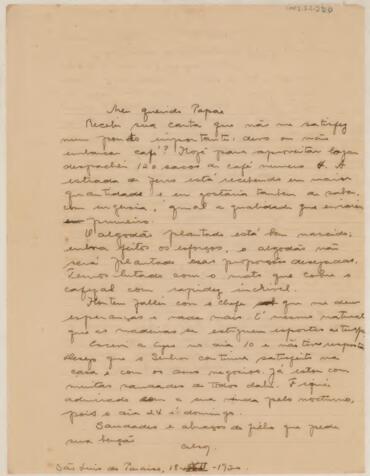 Meu querido Papae
Recebi sua carta que não me satisfez
num ponto importante: devo ou não
embarcar café? Hoje para aproveitar lugar
despachei 120 saccos de café numero
estrada de ferro está recebendo em maior
quantidade e eu gostaria tambem de saber,
com urgencia, qual a qualidade que enviarei
primeiro.
O algodão plantado está bem nascido;
embora feitos os esforços, o algodão não
será plantado nas proporções desejadas.
Temos lutado com o mato que cobre o
cafezal com rapidez incrivel.
Hontem fallei com o Chefe que me deu
esperanças e nada mais. É mesmo natural
que as madeiras se estraguem expostas ao tempo
Escrevi a no dia 10 e não tive resposta
Desejo que o Senhor continue satisfeito na
casa e com os seus negocios. Já estou com
muitas saudades de todos dahi. Fiquei
admirado com a sua vinda pelo nocturno,
pois o dia 24 é domingo.
Saudades e abraços do filho que pede
sua benção
São Luis do Paraiso, 18-XII-192